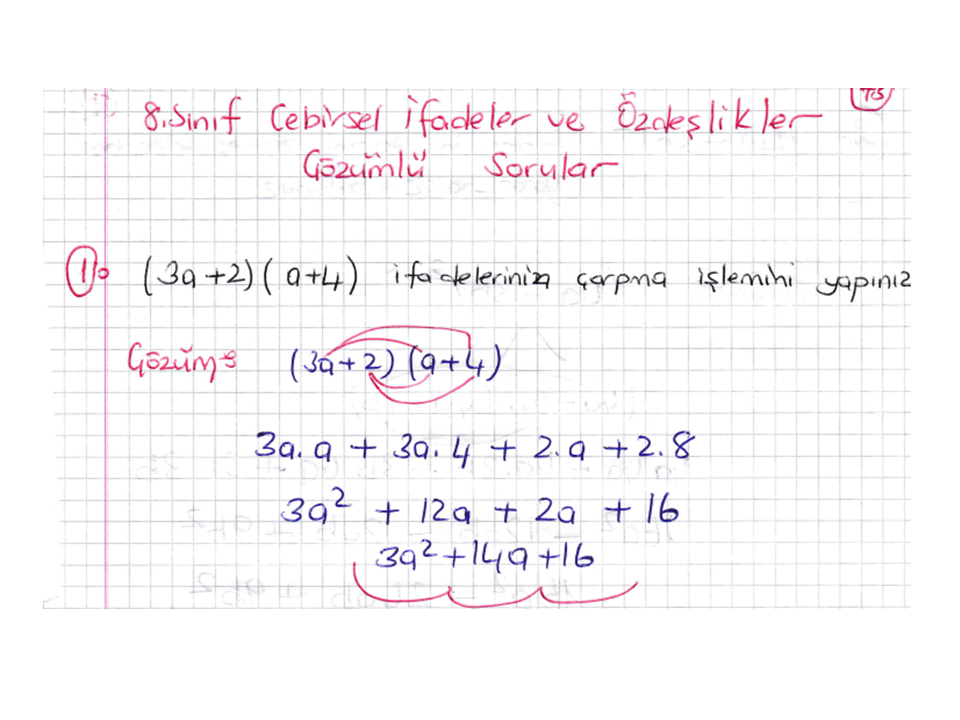 TS
8.Sınıf Cebirsel İfadeler ve Özdeşlikler
Çözümlü Sorular
1) (3a+2)(a+4) ifadelerinin çarpma işlemini yapınız
Çözüm: (3a+2)(a+4)
3a.a + 3a.4 + 2.a + 2.8
3a² + 12a + 2a + 16
3a²+14a+16